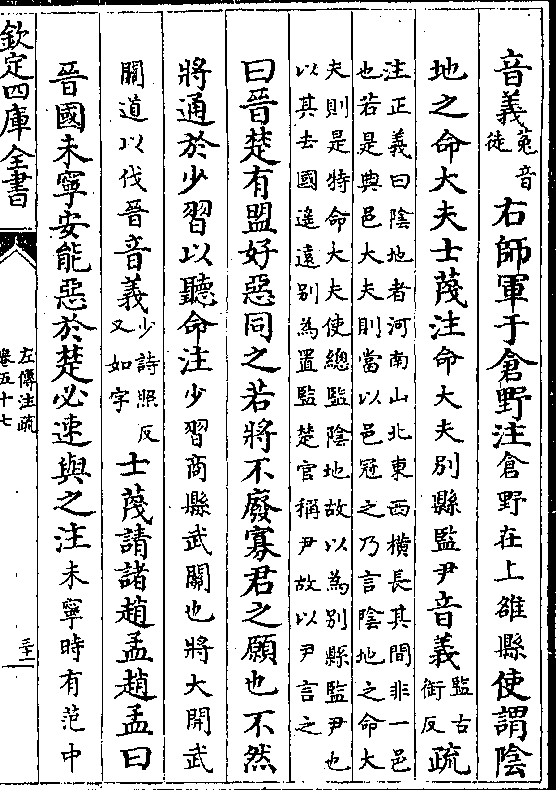 音義菟音徒右師軍于倉野注倉野在上雒縣使謂陰
地之命大夫士蔑注命大夫别縣監尹音義監古銜反疏
注正義曰陰地者河南山北東西橫長其間非一邑
也若是典邑大夫則當以邑冠之乃言陰地之命大
夫則是特命大夫使總監陰地故以為别縣監尹也
以其去國遥遠别為置監楚官稱尹故以尹言之
曰晉楚有盟好惡同之若將不廢寡君之願也不然
將通於少習以聽命注少習商縣武關也將大開武
關道以伐晉音義少詩照反又如字士蔑請諸趙孟趙孟曰
晉國未寧安能惡於楚必速與之注未寧時有范中
欽定四庫全書
左傳注疏
卷五十七